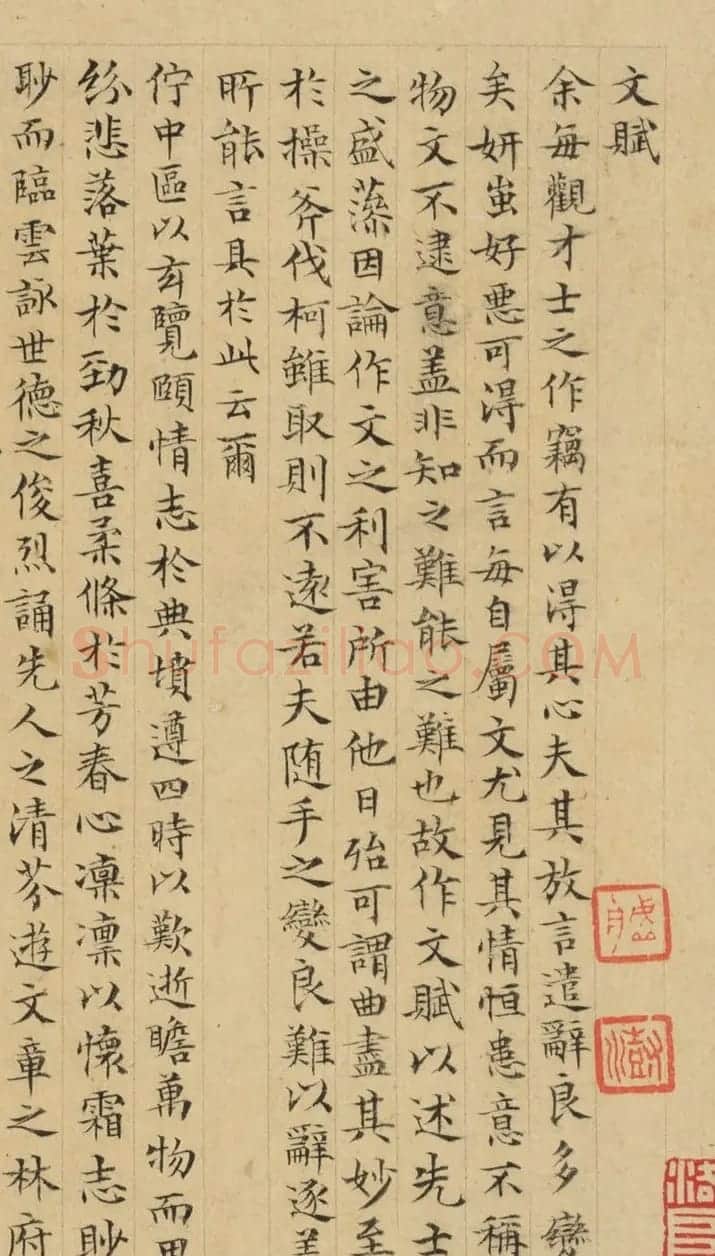 文賦
余每觀才士之作竊有以淂其心夫其放言遣辭良多變
矣妍蚩好惡可淂而言每自屬文尤見其情恒患意不稱
物文不逮意盖非知之難能之難也故作文賦以述先士
之盛藻因論作文之利害所由他日殆可謂曲盡其妙至
於操斧伐柯雖取則不遠若夫随手之變良難以辭逐盖
所能言具於此云爾
佇中區以玄覽頤情志於典墳遵四時以歎逝瞻萬物而思
紛悲落葉於勁秋喜柔條於芳春心凜凜以懷霜志眇
眇而臨雲詠世德之俊烈誦先人之清芬遊文章之林府
shufaziliao.COM